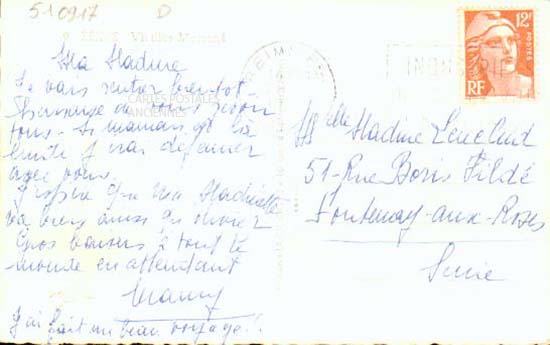 510917 D
Ma Nadine
Je vais rentrer bientôt -
de vous revoir
tous - Si maman est là
j'irai déjeuner
avec vous.
J'espère que ma Nadinette
va bien ainsi qu'Olivier
Gros baisers à tout le
monde en attendant
Mamy
J'ai fait un beau voyage!!
CARTES POSTALES
ANCIENNES
12F
POSTES
RF
Melle Nadine
51 - Rue Boris Vildé
Fontenay-aux-Roses
Seine